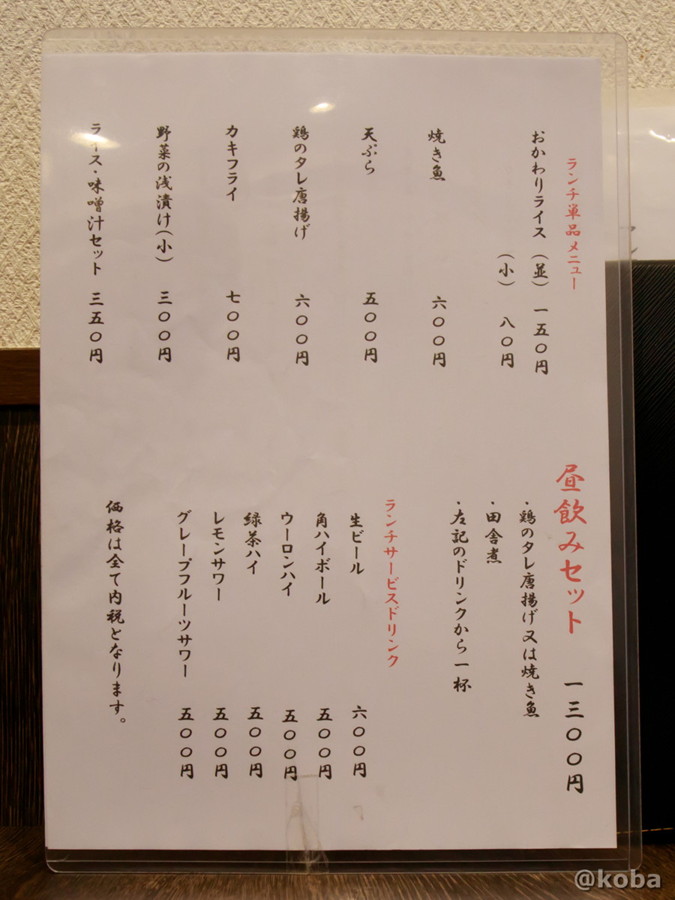 ランチ単品メニュー
おかわりライス（並）一五〇円
（小）八〇円
焼き魚 六〇〇円
天ぷら 五〇〇円
鶏のタレ唐揚げ 六〇〇円
カキフライ 七〇〇円
野菜の浅漬け（小）三〇〇円
ライス・味噌汁セット 三五〇円
昼飲みセット 一三〇〇円
・鶏のタレ唐揚げ又は焼き魚
・田舎煮
・左記のドリンクから一杯
ランチサービスドリンク
生ビール 六〇〇円
角ハイボール 五〇〇円
ウーロンハイ 五〇〇円
緑茶ハイ 五〇〇円
レモンサワー 五〇〇円
グレープフルーツサワー 五〇〇円
価格は全て内税となります。
@koba